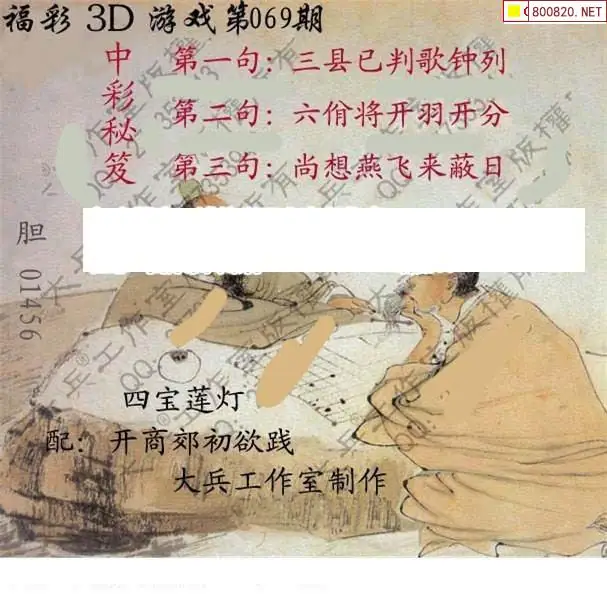 800820.NET
福彩 3D 游戏第069期
中彩秘笈
第一句：三县已判歌钟列
第二句：六佾将开羽开分
第三句：尚想燕飞来蔽日
胆 01456
四宝莲灯
配：开商郊初欲践
大兵工作室制作
大兵®工作室版權所有